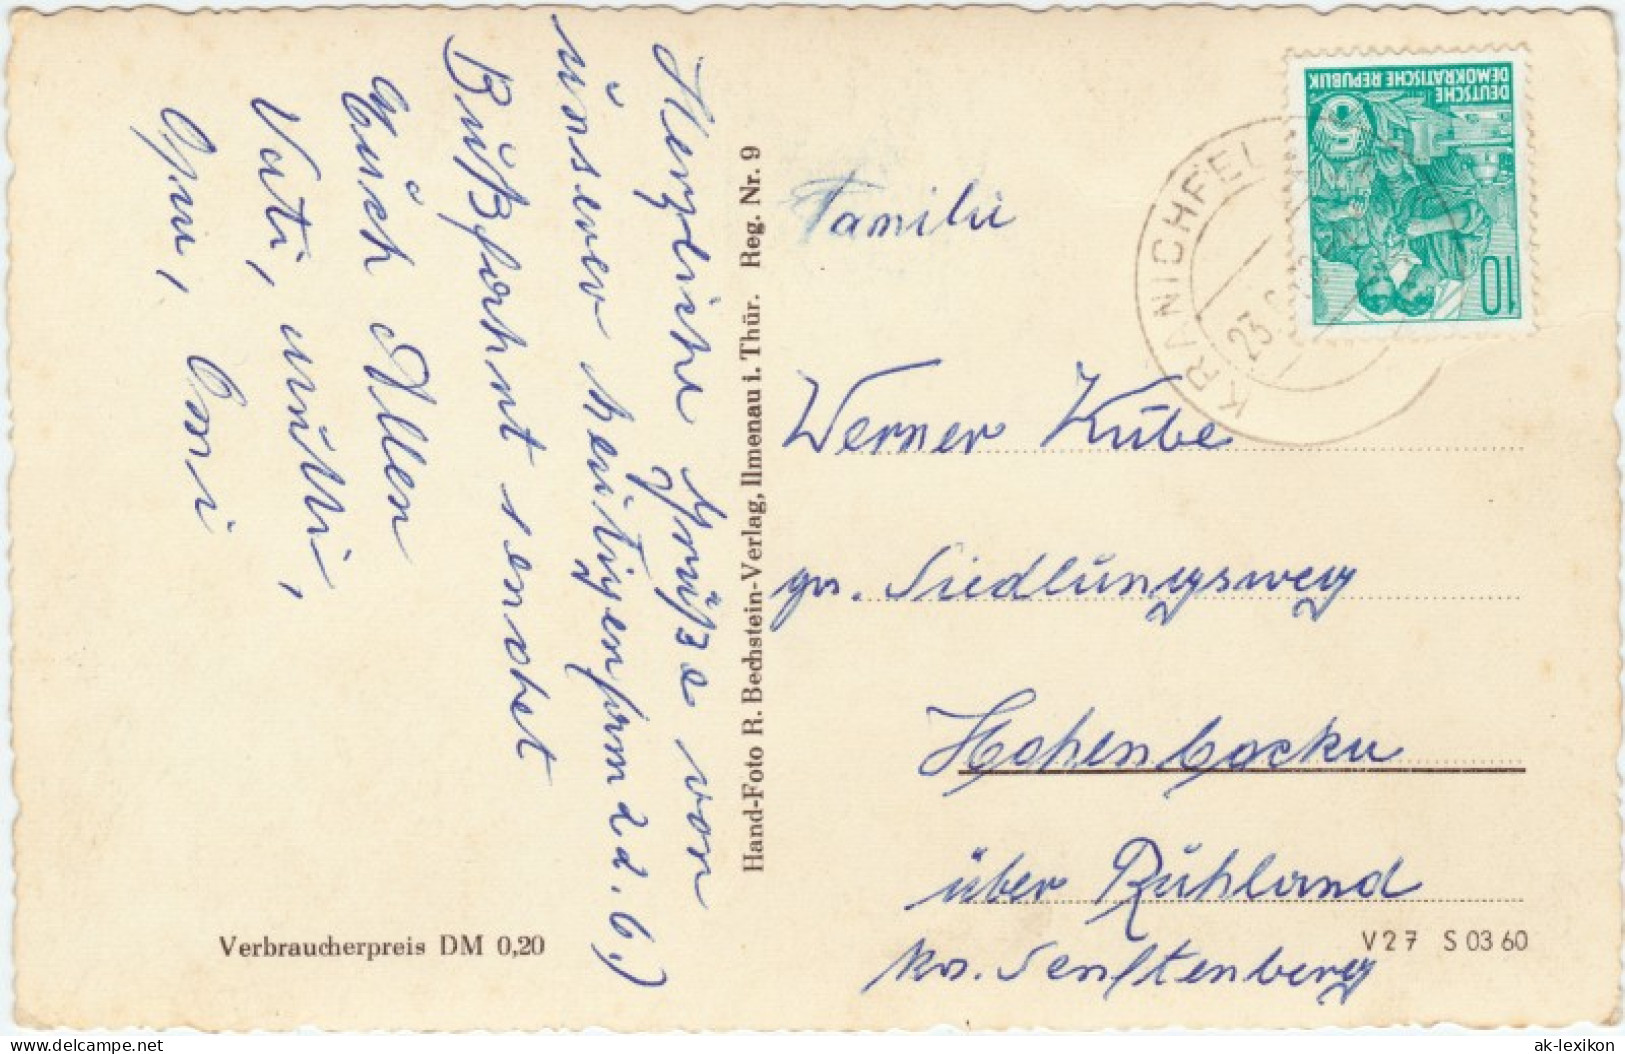 Herzliche Grüße von
unserer heutigen (am 22.6.)
Bußfahrt sendet
Euch Allen
Vati, Mutti,
Omi
Hand-Foto R. Bechstein-Verlag, Ilmenau i. Thür. Reg. Nr. 9
DEUTSCHE
DEMOKRATISCHE REPUBLIK
10
KRANICHFEL
23
Familie
Werner Kube
Siedlungsweg
Hohenbocka
über Ruhland
Krs. Senftenberg
Verbraucherpreis DM 0,20
V 2 7 S 03 60
ak-lexikon